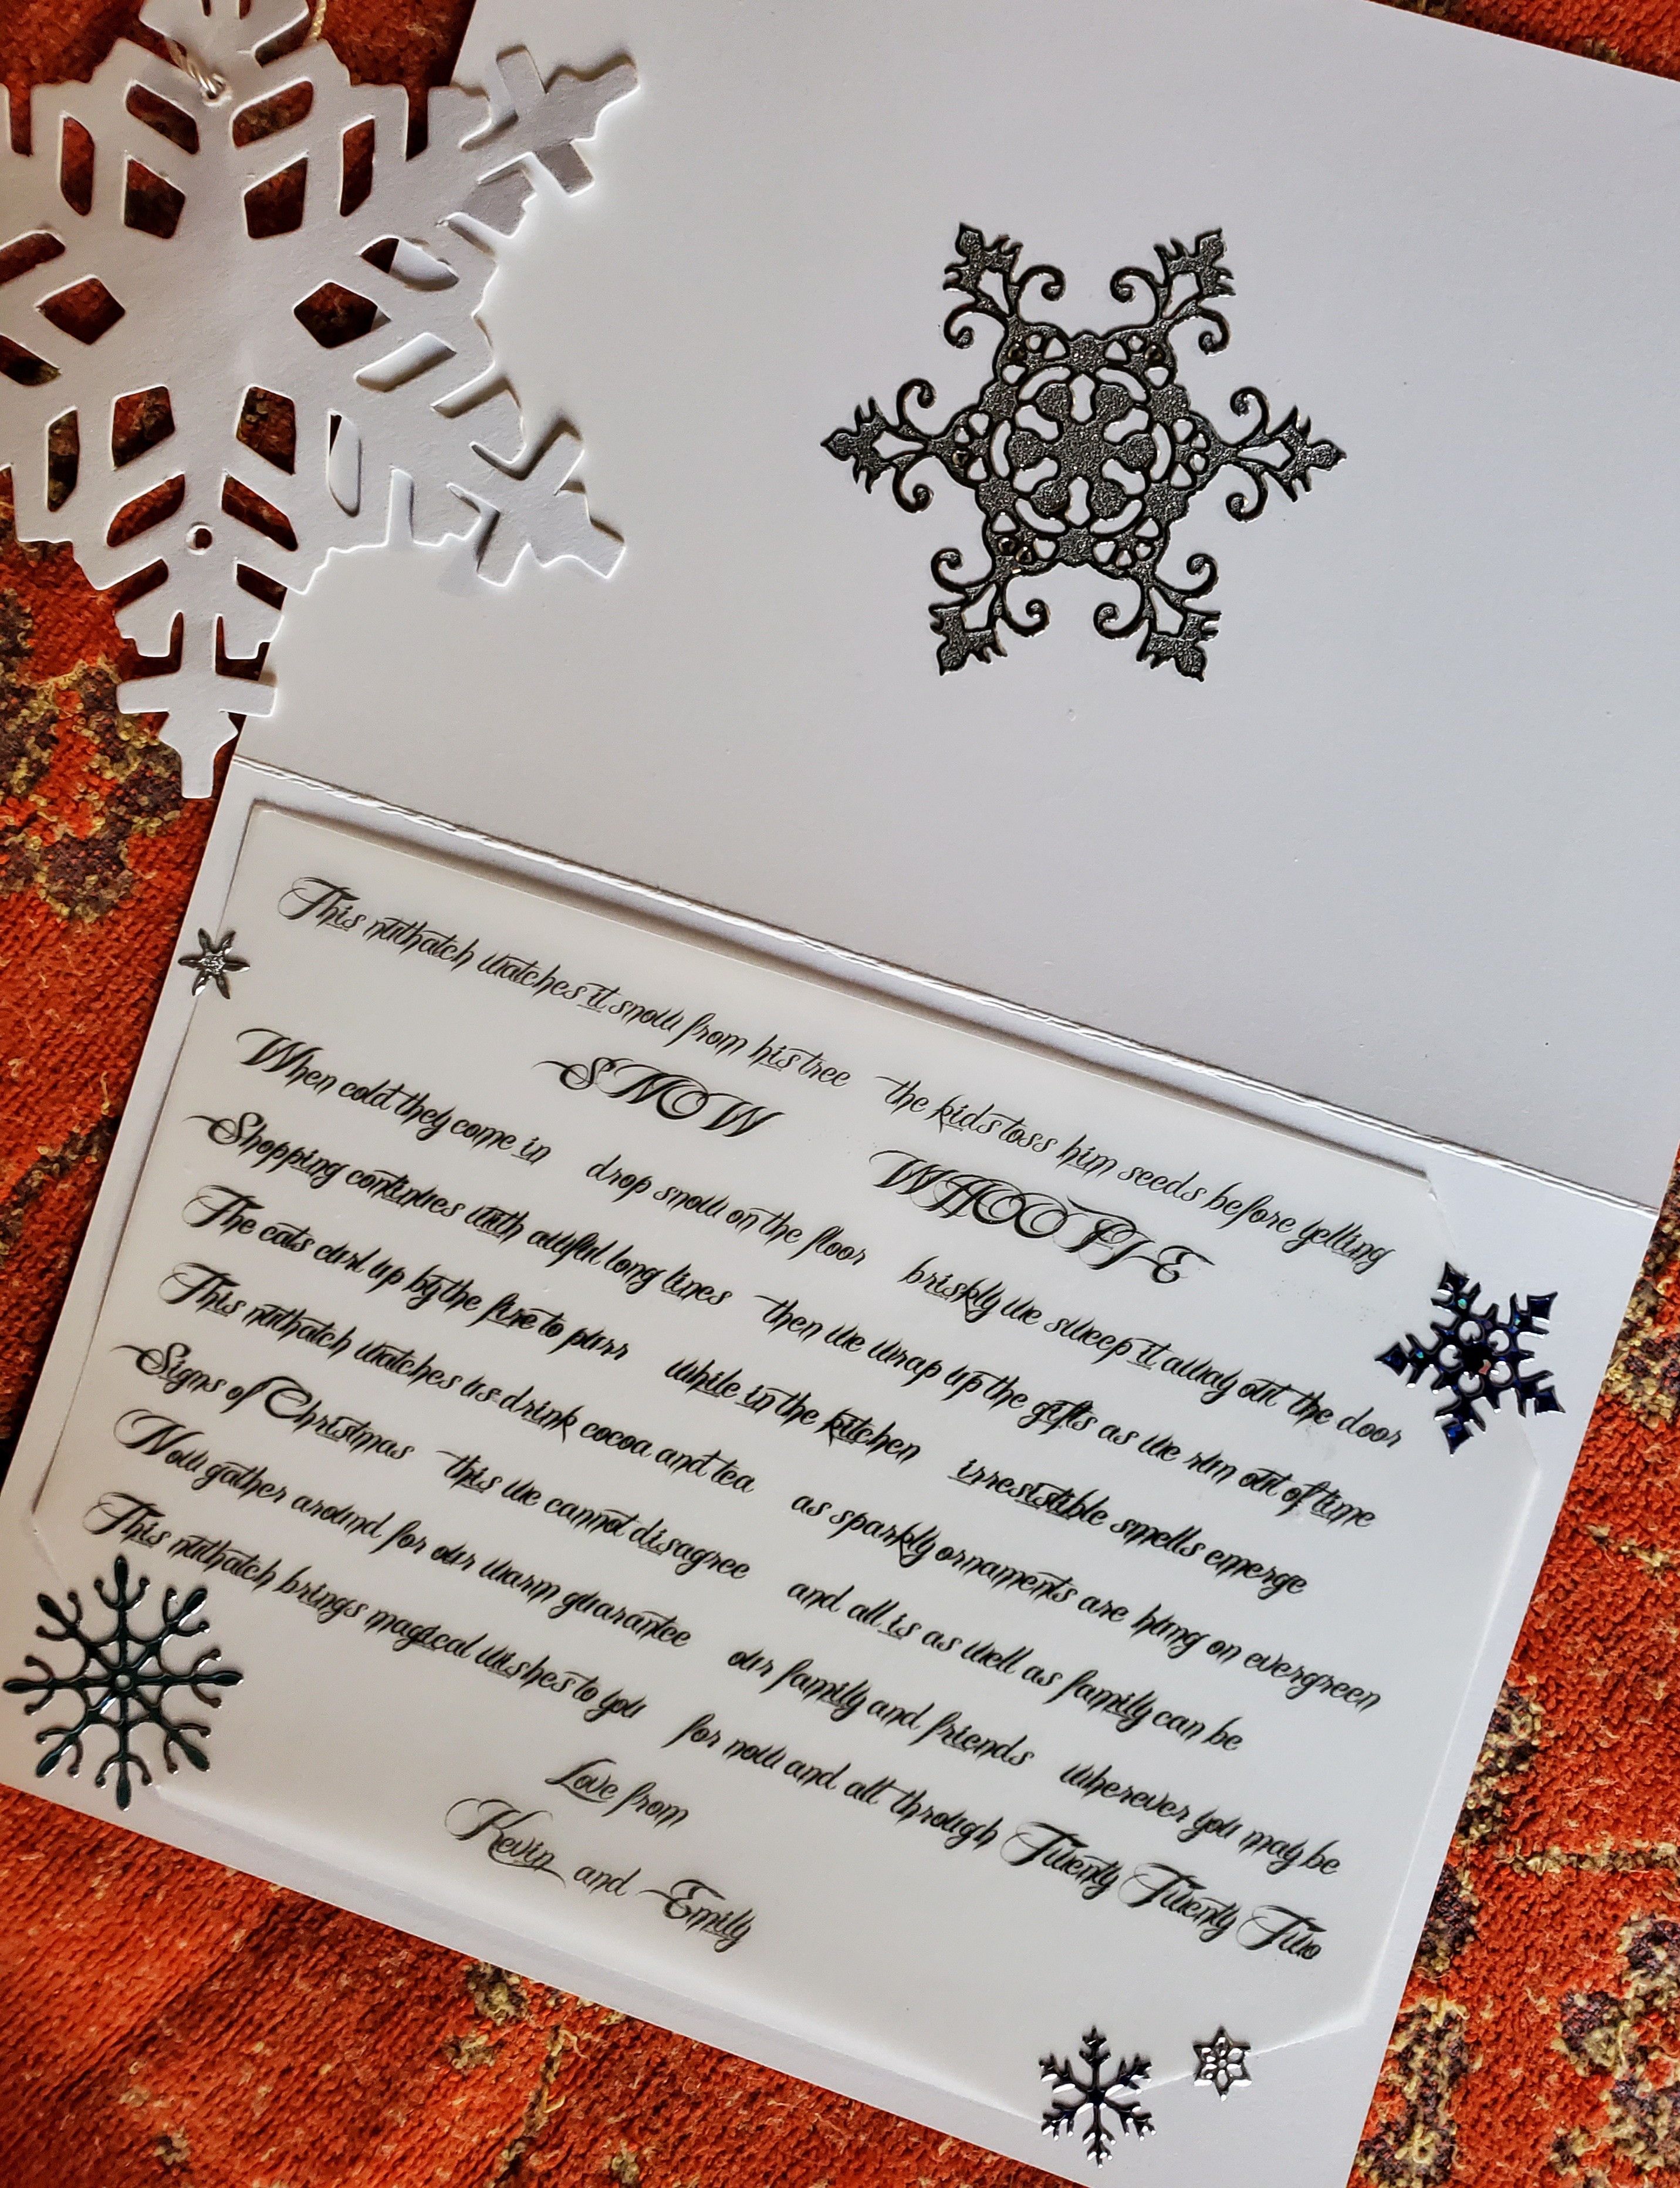 This nuthatch watches it snow from his tree the kids toss him seeds before yelling
SNOW WHOOPIE
When cold they come in drop snow on the floor briskly we sweep it away out the door
Shopping continues with awful long lines then we wrap up the gifts as we run out of time
The cats curl up by the fire to purr while in the kitchen irresistible smells emerge
This nuthatch watches us drink cocoa and tea as sparkly ornaments are hung on evergreen
Signs of Christmas this we cannot disagree and all is as well as family can be
Now gather around for our warm guarantee our family and friends wherever you may be
This nuthatch brings magical wishes to you for now and all through Twenty Twenty Two
Love from
Kevin and Emily